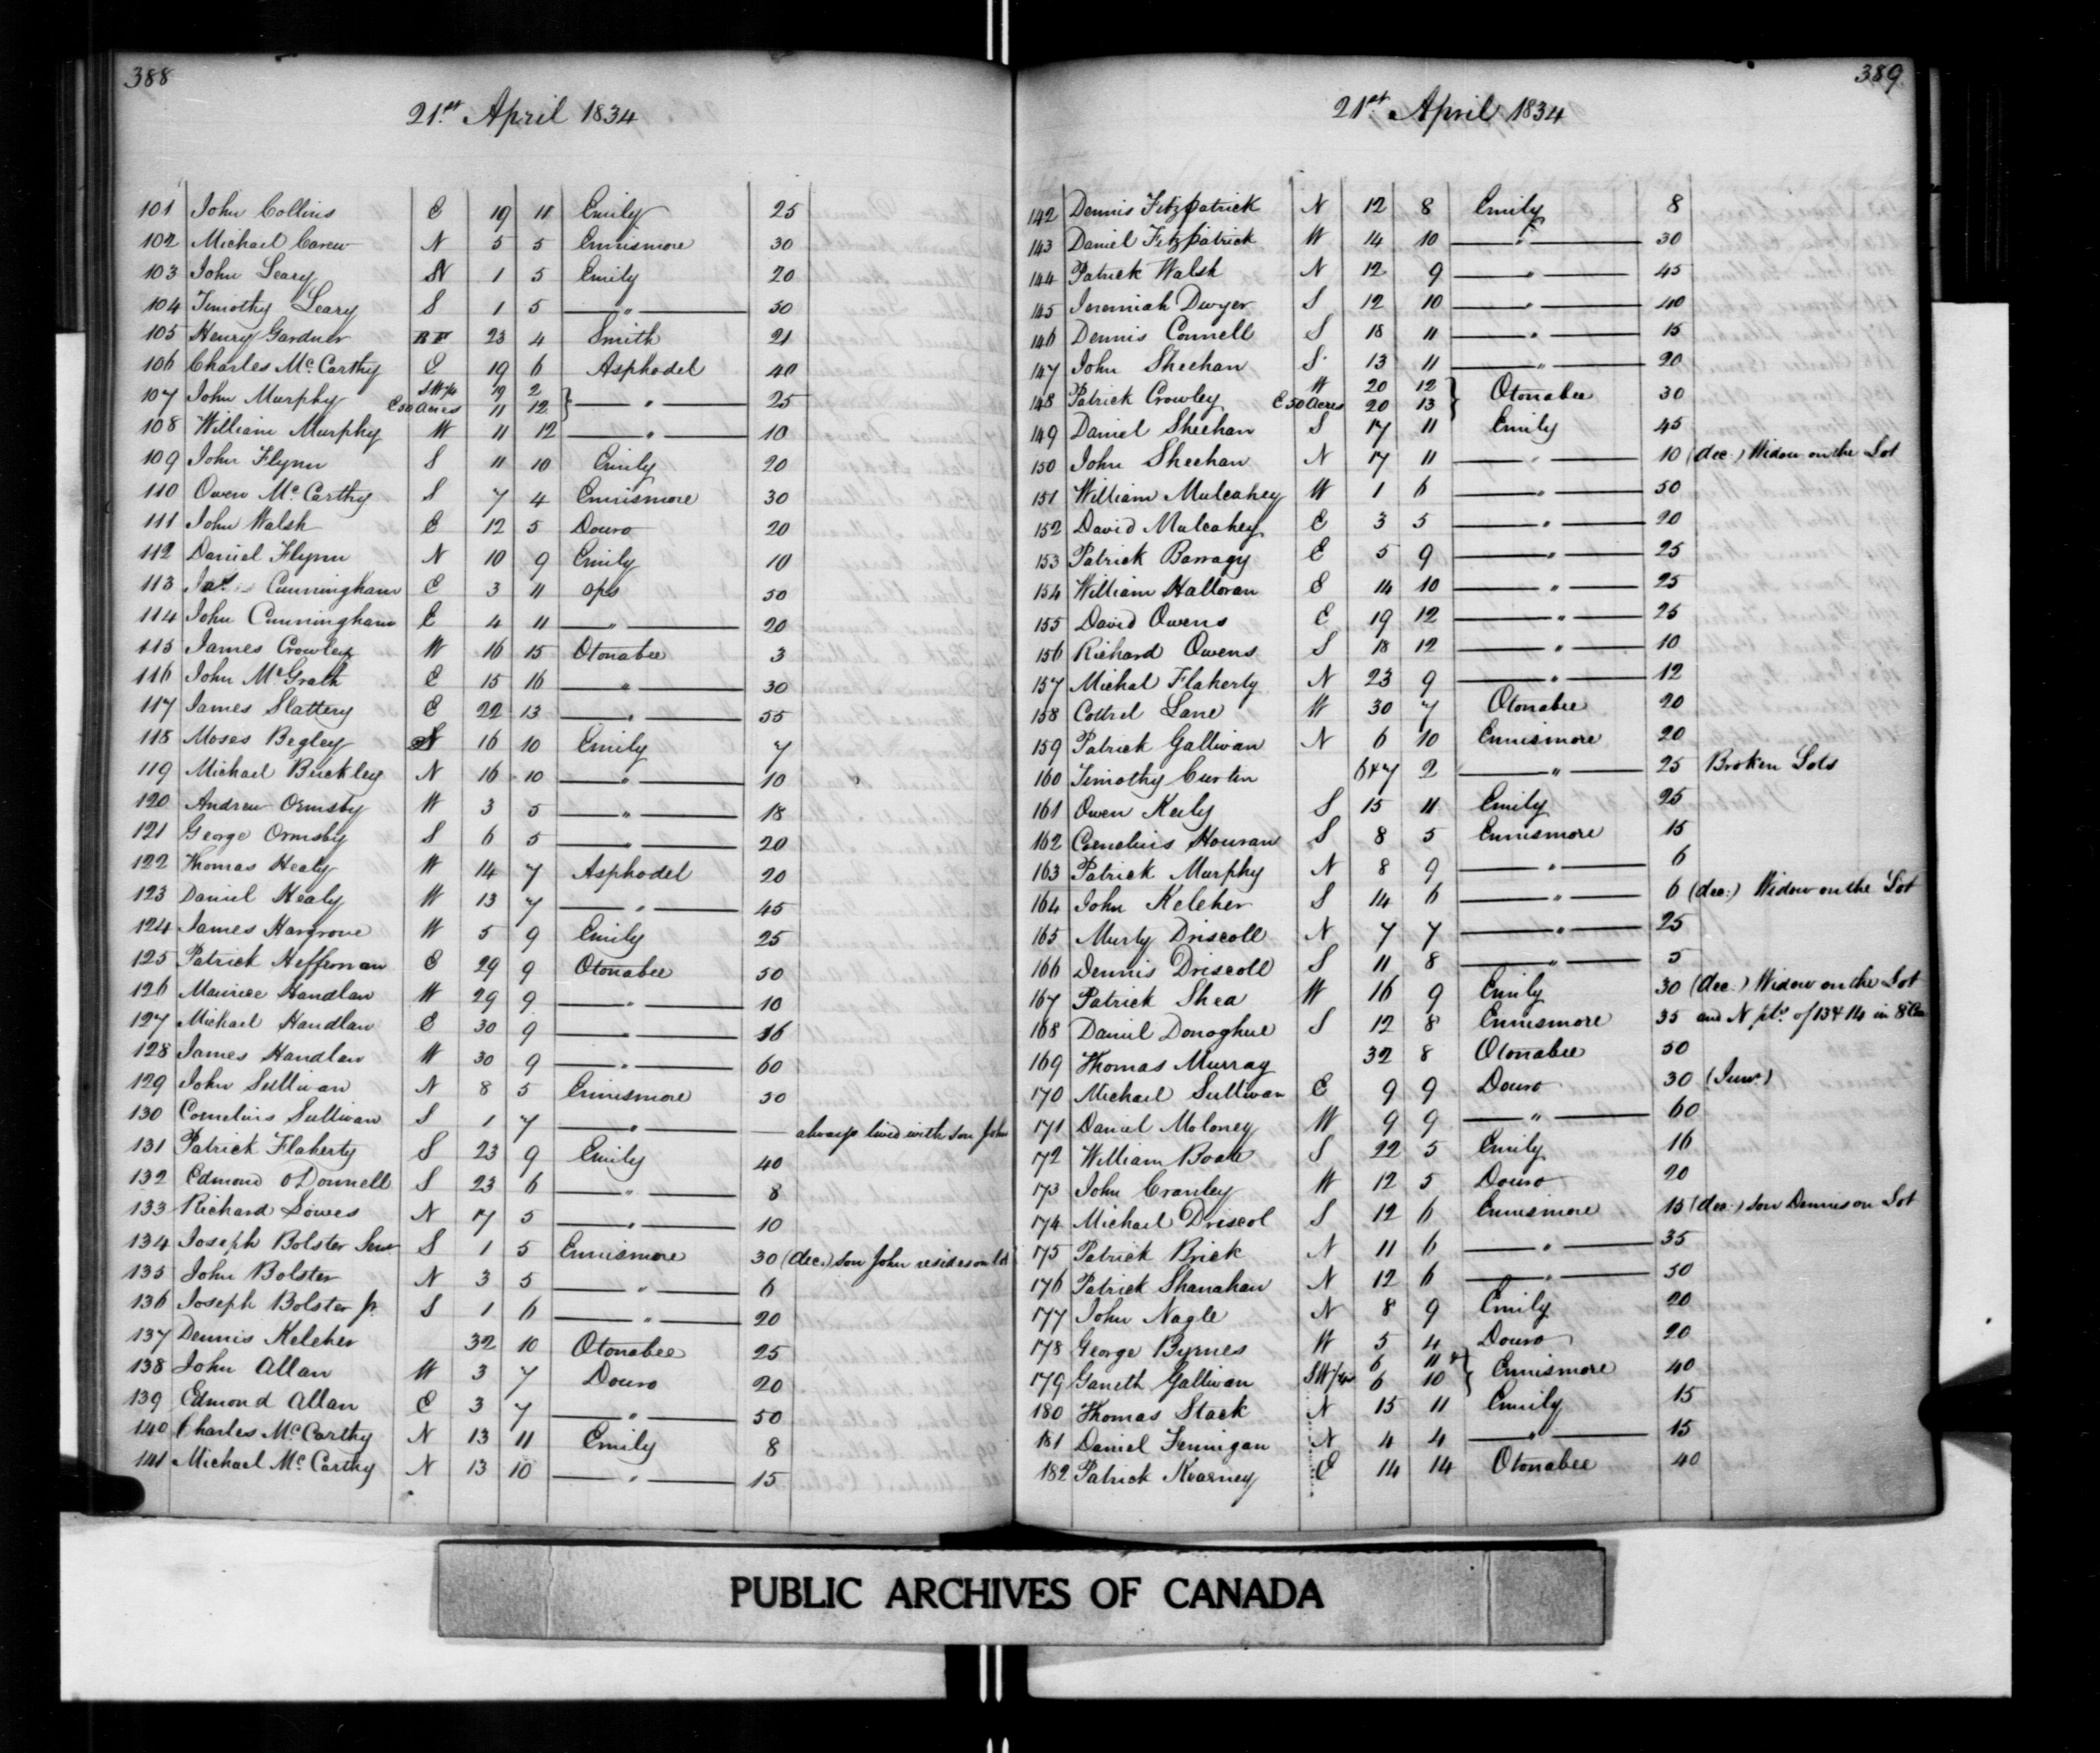 388
21st April 1834
101 John Collins E 19 11 Emily 25
102 Michael Carew N 5 5 Ennismore 30
103 John Leary N 1 5 Emily 20
104 Timothy Leary S 1 5 " 50
105 Henry Gardner BF 23 4 Smith 21
106 Charles McCarthy E 19 6 Asphodel 40
107 John Murphy SW 1/4 19 2 } " 25
E 50 Acres 11 12
108 William Murphy W 11 12 " 10
109 John Flynn S 11 10 Emily 20
110 Owen McCarthy S 7 4 Ennismore 30
111 John Walsh E 12 5 Douro 20
112 Daniel Flynn N 10 9 Emily 10
113 Jas. Cunningham E 3 11 Ops 50
114 John Cunningham E 4 11 " 20
115 James Crowley W 16 15 Otonabee 3
116 John McGrath E 15 16 " 30
117 James Slattery E 22 13 " 55
118 Moses Begley S 16 10 Emily 7
119 Michael Buckley N 16 10 " 10
120 Andrew Ormsby W 3 5 " 18
121 George Ormsby S 6 5 " 20
122 Thomas Healy W 14 7 Asphodel 20
123 Daniel Healy W 13 7 " 45
124 James Hargrove W 5 9 Emily 25
125 Patrick Heffernan E 29 9 Otonabee 50
126 Maurice Handlan W 29 9 " 10
127 Michael Handlan E 30 9 " 16
128 James Handlan W 30 9 " 60
129 John Sullivan N 8 5 Ennismore 30
130 Cornelius Sullivan S 1 7 " — always lived with son John
131 Patrick Flaherty S 23 9 Emily 40
132 Edmond O Donnell S 23 6 " 8
133 Richard Sowes N 17 5 " 10
134 Joseph Bolster Senr S 1 5 Ennismore 30 (dec.) son John resides on lot
135 John Bolster N 3 5 " 6
136 Joseph Bolster Jr. S 1 6 " 20
137 Dennis Keleher 32 10 Otonabee 25
138 John Allan W 3 7 Douro 20
139 Edmond Allan E 3 7 " 50
140 Charles McCarthy N 13 11 Emily 8
141 Michael McCarthy N 13 10 " 15
389
21st April 1834
142 Dennis Fitzpatrick N 12 8 Emily 8
143 Daniel Fitzpatrick W 14 10 " 30
144 Patrick Walsh N 12 9 " 45
145 Jeremiah Dwyer S 12 10 " 40
146 Dennis Connell S 18 11 " 15
147 John Sheehan S 13 11 " 20
148 Patrick Crowley W 20 12 } Otonabee 30
E 50 Acres 20 13
149 Daniel Sheehan S 17 11 Emily 45
150 John Sheehan N 17 11 " 10 (dec.) Widow on the Lot
151 William Mulcahey W 1 6 " 50
152 David Mulcahey E 3 5 " 20
153 Patrick Barragy E 5 9 " 25
154 William Halloran E 14 10 " 25
155 David Owens E 19 12 " 25
156 Richard Owens S 18 12 " 10
157 Michal Flaherty N 23 9 " 12
158 Cottrel Lane W 30 7 Otonabee 20
159 Patrick Gallivan N 6 10 Ennismore 20
160 Timothy Curtin 6 & 7 2 " 25 Broken Lots
161 Owen Keily S 15 11 Emily 25
162 Cornelius Houran S 8 5 Ennismore 15
163 Patrick Murphy N 8 9 " 6
164 John Keleher S 14 6 " 6 (dec.) Widow on the Lot
165 Murty Driscoll N 7 7 " 25
166 Dennis Driscoll S 11 8 " 5
167 Patrick Shea W 16 9 Emily 30 (dec.) Widow on the Lot
168 Daniel Donoghue S 12 8 Ennismore 35 and N pts. of 13 & 14 in 8 Con
169 Thomas Murray 32 8 Otonabee 50
170 Michael Sullivan E 9 9 Douro 30 (Junr.)
171 Daniel Moloney W 9 9 " 60
172 William Boate S 22 5 Emily 16
173 John Cranley W 12 5 Douro 20
174 Michael Driscol S 12 6 Ennismore 15 (dec.) son Dennis on Lot
175 Patrick Brick N 11 6 " 35
176 Patrick Shanahan N 12 6 " 50
177 John Nagle N 8 9 Emily 20
178 George Byrnes W 5 4 Douro 20
179 Garreth Gallivan 6 11 & } Ennismore 40
SW 1/4 6 10
180 Thomas Stack N 15 11 Emily 15
181 Daniel Finnigan N 4 4 " 15
182 Patrick Kearney E 14 14 Otonabee 40
PUBLIC ARCHIVES OF CANADA